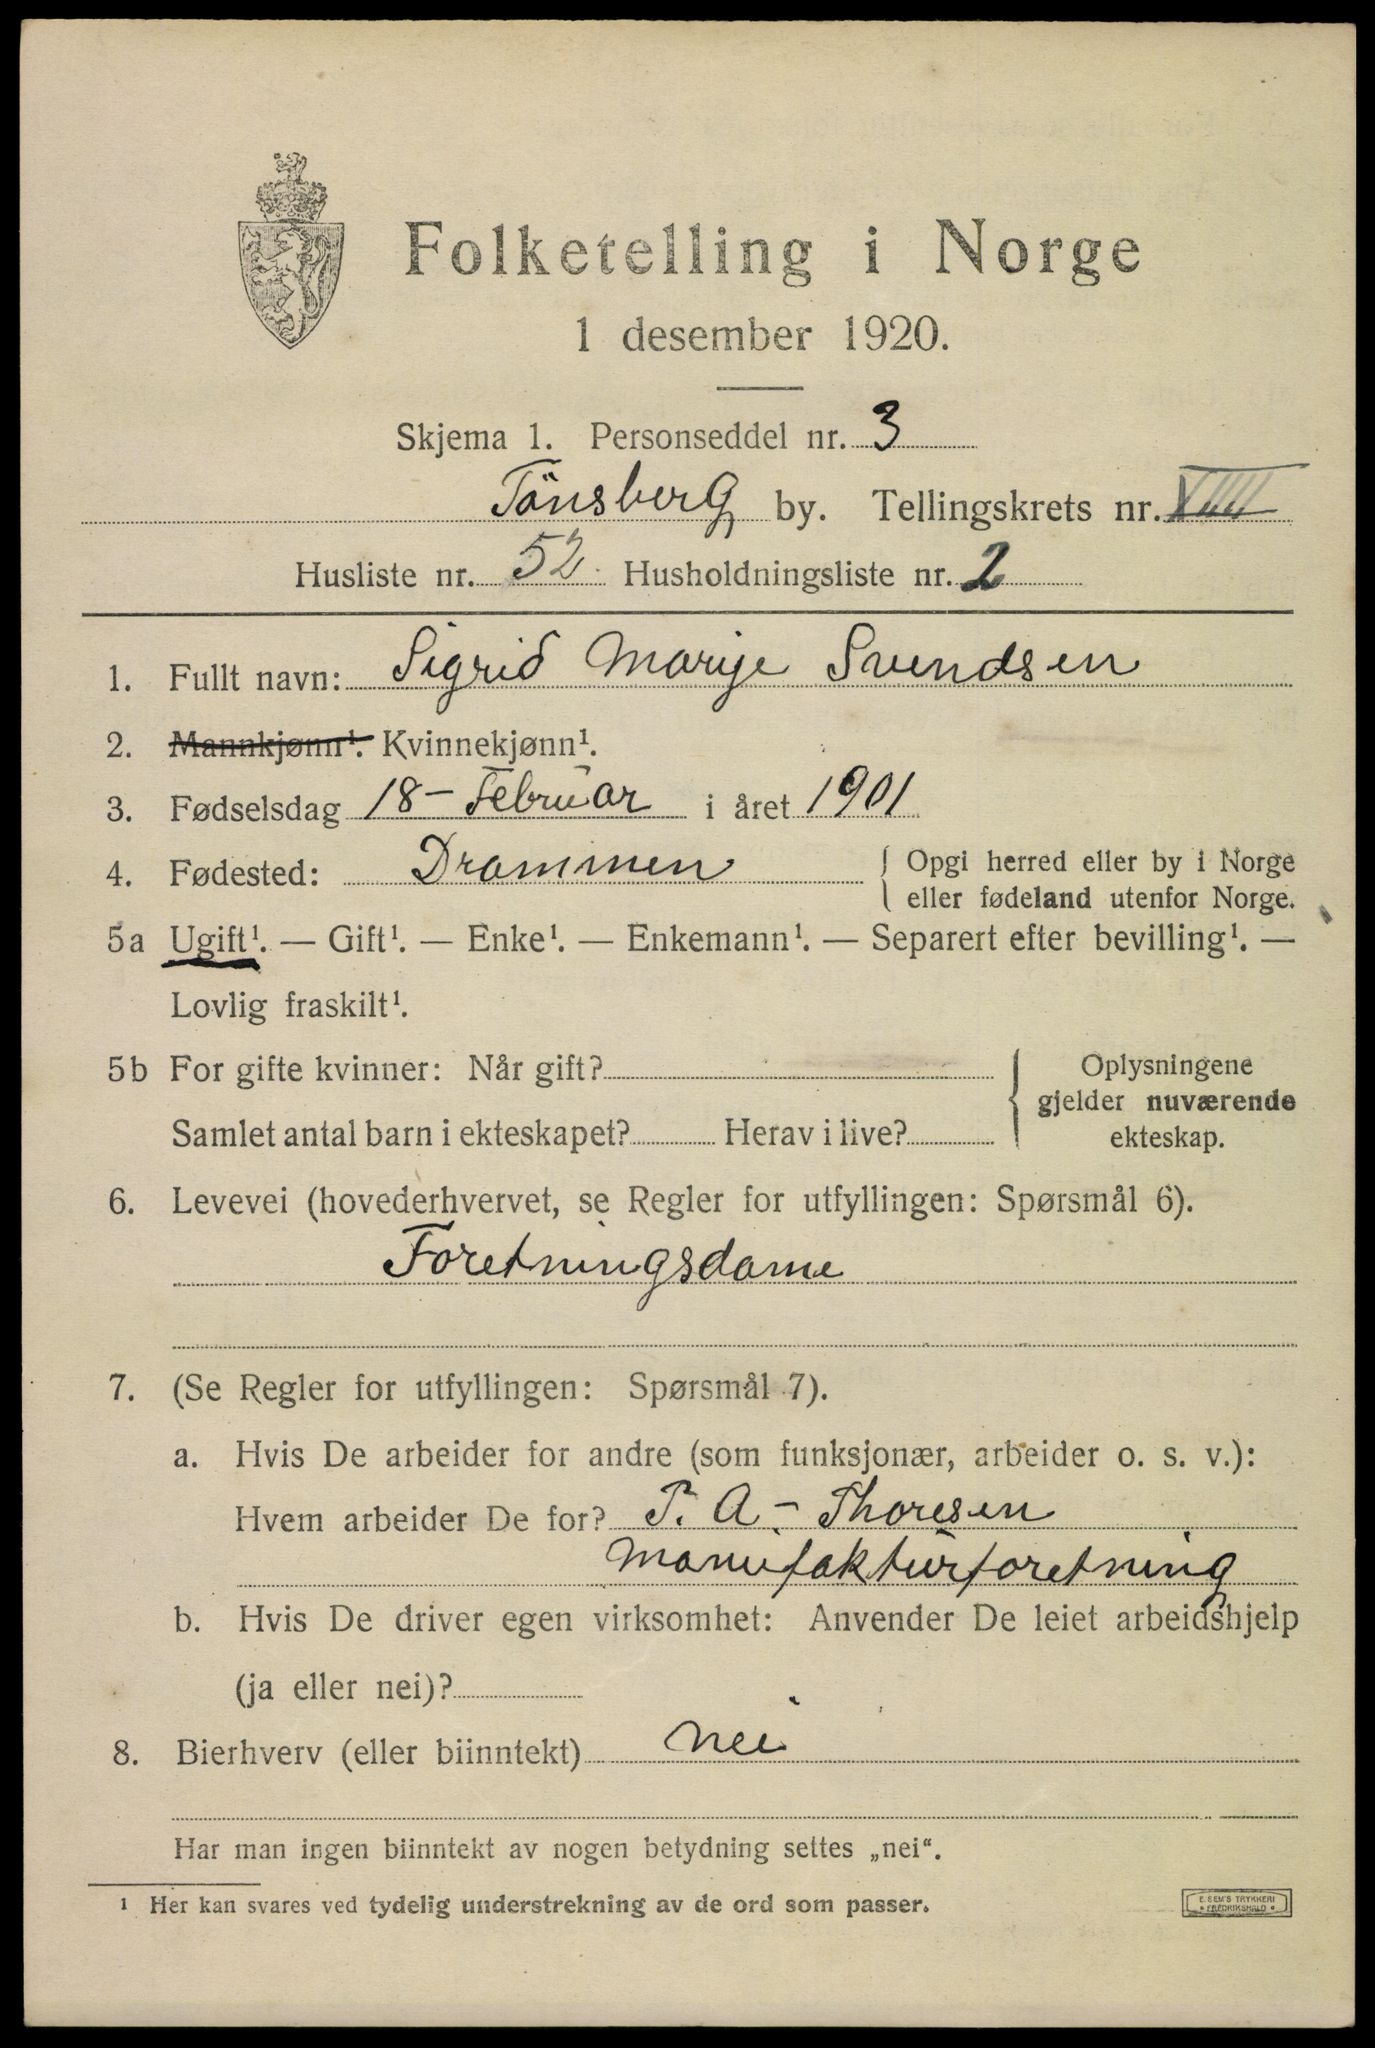 Folketelling i Norge
1 desember 1920.
Skjema 1. Personseddel nr. 3
Tönsberg by. Tellingskrets nr. XIIII
Husliste nr. 52. Husholdningsliste nr. 2
1. Fullt navn: Sigrid Marije Svendsen
2. Mannkjønn¹. Kvinnekjønn¹.
3. Fødselsdag 18 – Februar i året 1901
4. Fødested: Drammen { Opgi herred eller by i Norge
eller fødeland utenfor Norge.
5a Ugift¹. — Gift¹. — Enke¹. — Enkemann¹. — Separert efter bevilling¹. —
Lovlig fraskilt¹.
5b For gifte kvinner: Når gift? { Oplysningene
gjelder nuværende
Samlet antal barn i ekteskapet? Herav i live? ekteskap.
6. Levevei (hovederhvervet, se Regler for utfyllingen: Spørsmål 6).
Foretningsdame
7. (Se Regler for utfyllingen: Spørsmål 7).
a. Hvis De arbeider for andre (som funksjonær, arbeider o. s. v.):
Hvem arbeider De for? P. A. – Thoresen
Manufakturforetning
b. Hvis De driver egen virksomhet: Anvender De leiet arbeidshjelp
(ja eller nei)?
8. Bierhverv (eller biinntekt) nei
Har man ingen biinntekt av nogen betydning settes „nei“.
¹ Her kan svares ved tydelig understrekning av de ord som passer.
E. SEM'S TRYKKERI
• FREDRIKSHALD •